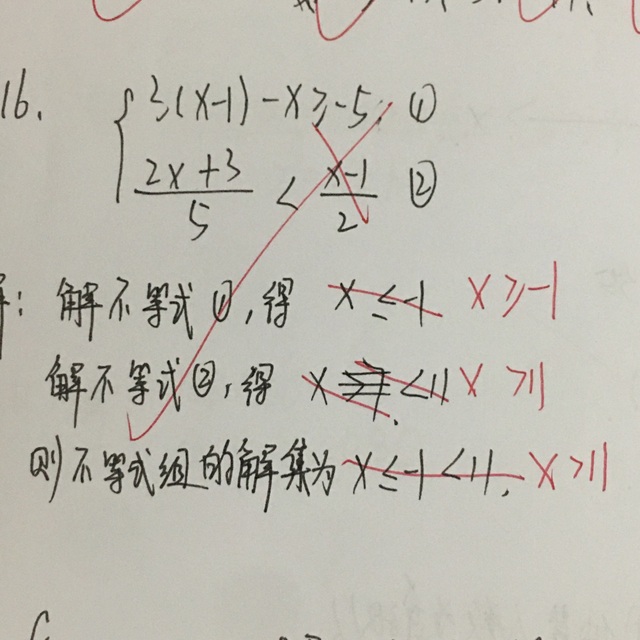 16. { 3(x-1)-x≥-5. ①
(2x+3)/5 < (x-1)/2 ②
解: 解不等式①,得 x≤-1 x≥-1
解不等式②,得 x <11 x>11
则不等式组的解集为 x≤-1<11. x>11